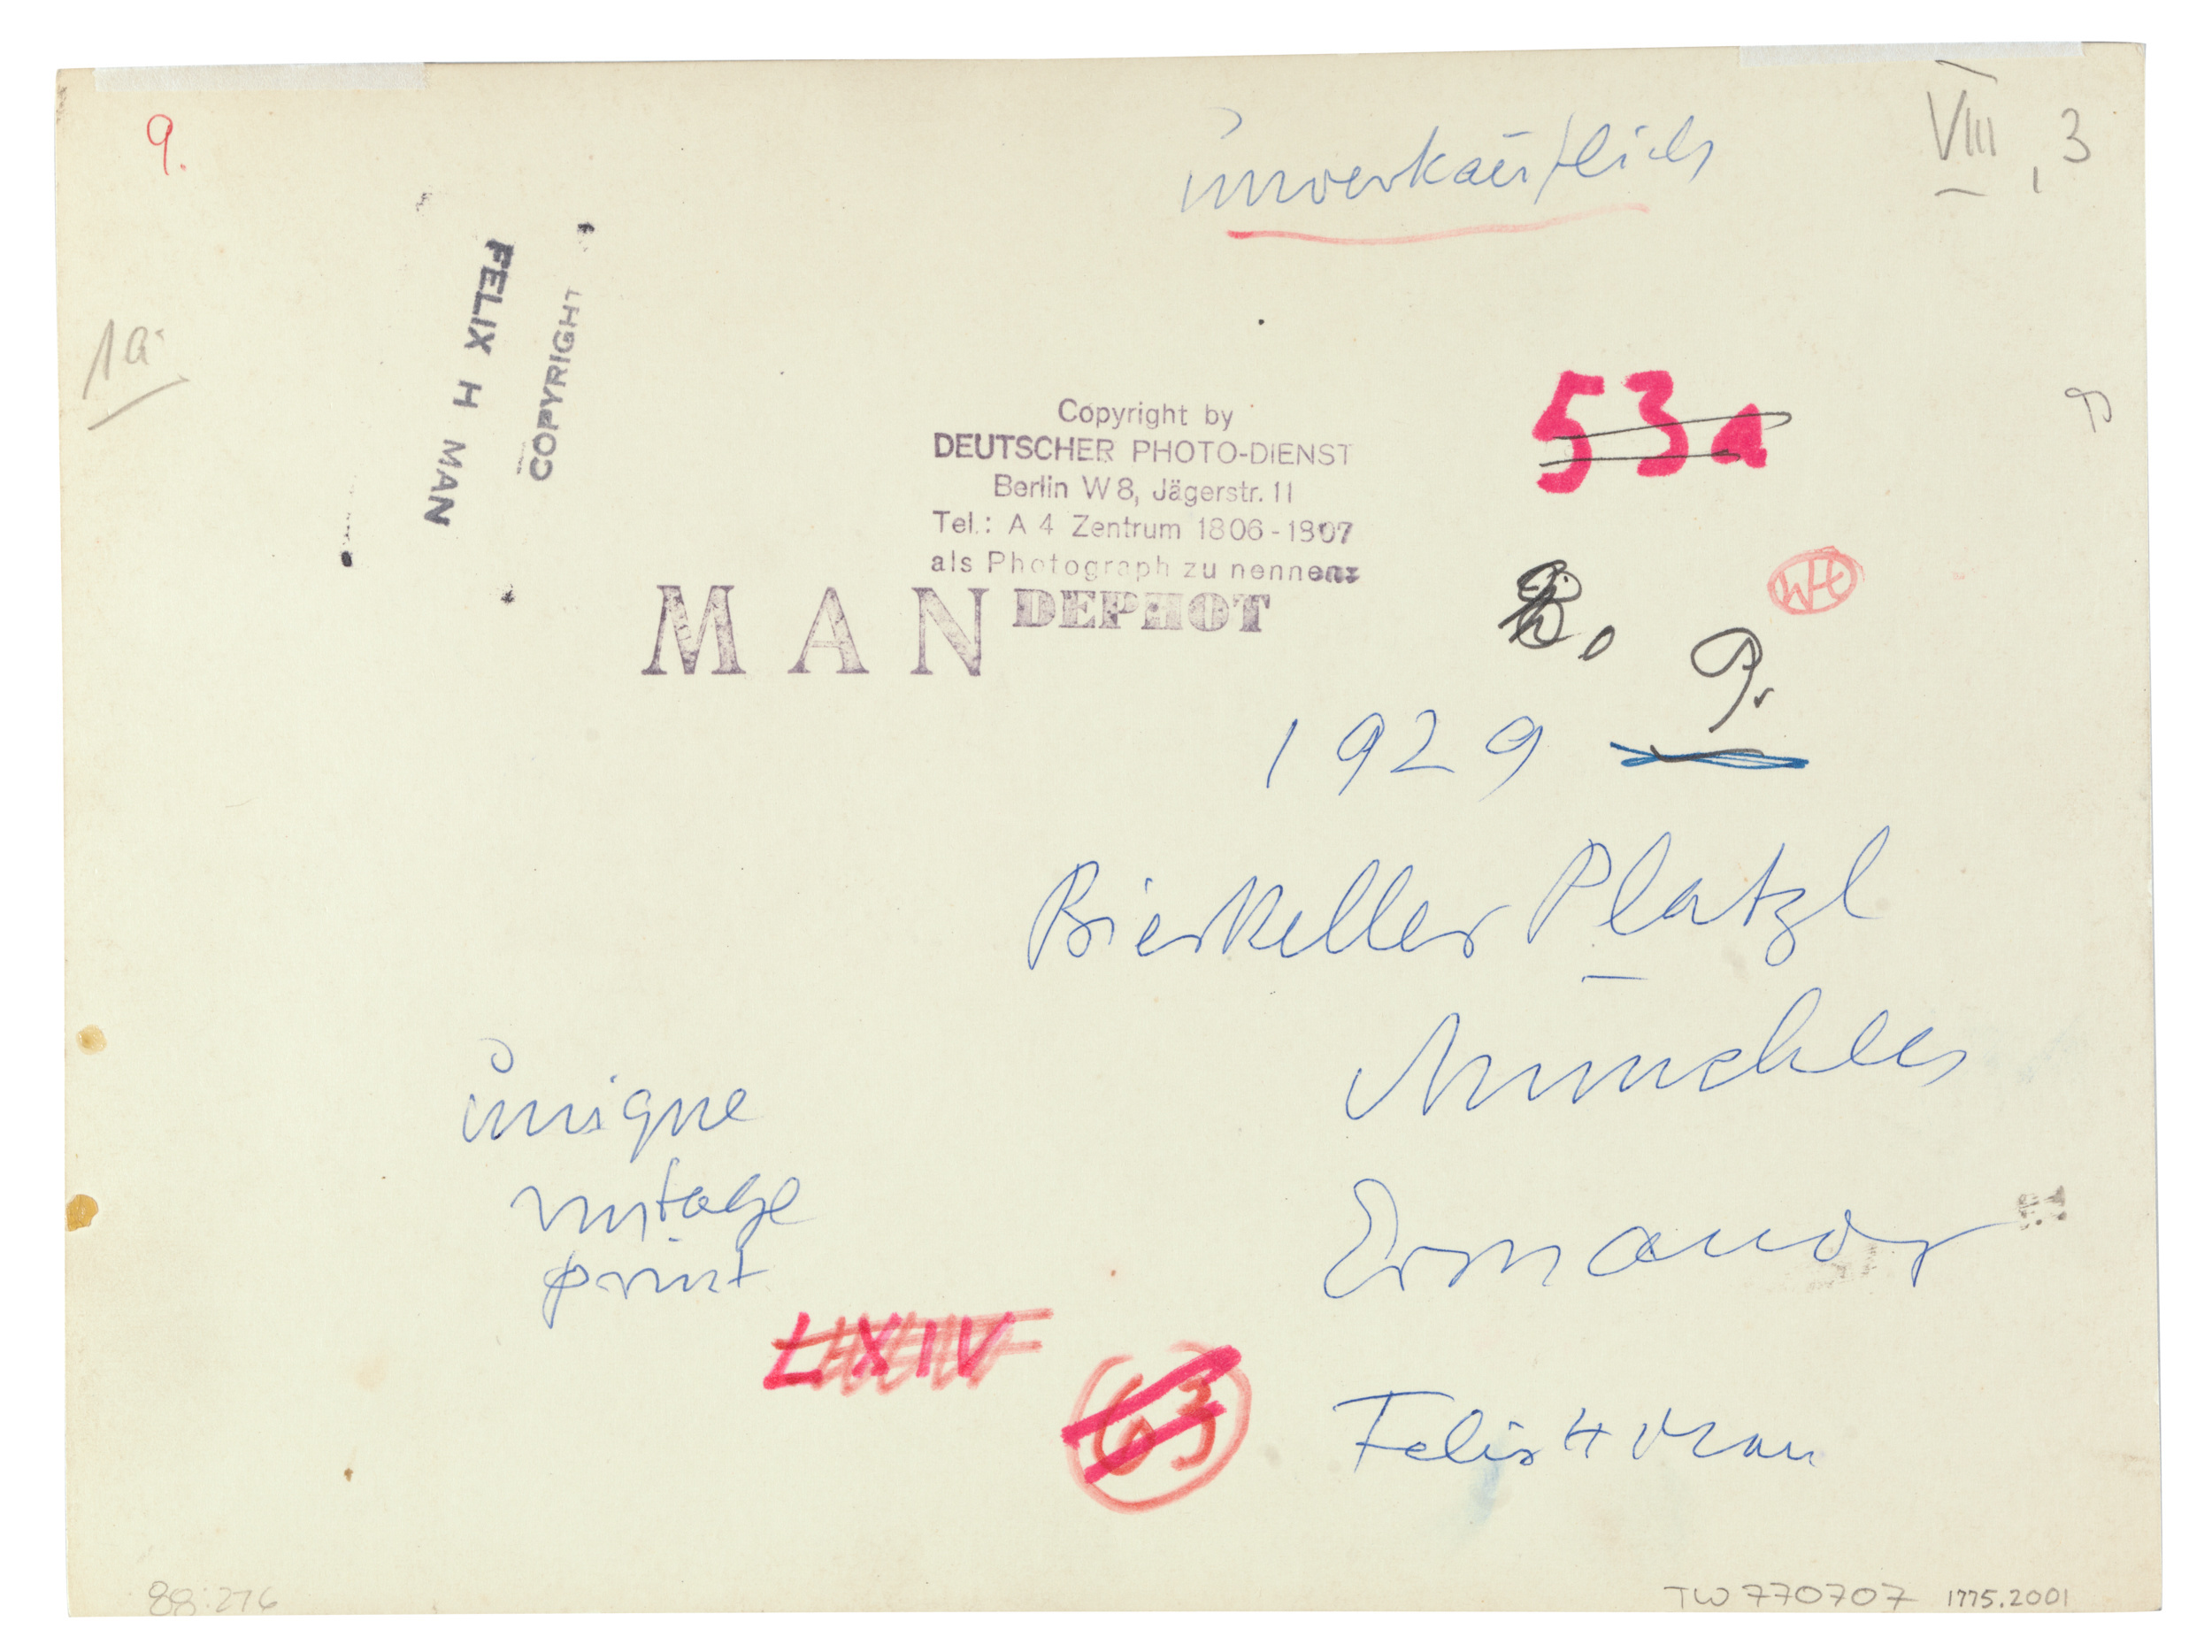 9.
unverkäuflich
VIII, 3
1a
FELIX H MAN
COPYRIGHT
53a
Copyright by
DEUTSCHER PHOTO-DIENST
Berlin W 8, Jägerstr. 11
Tel.: A 4 Zentrum 1806-1807
als Photograph zu nennen:
MAN DEPHOT
WH
9.
1929
Bierkeller Platzl
München
unique
vintage
print
LXIV
63
Felix H Man
88:276
TW 770707
1775.2001